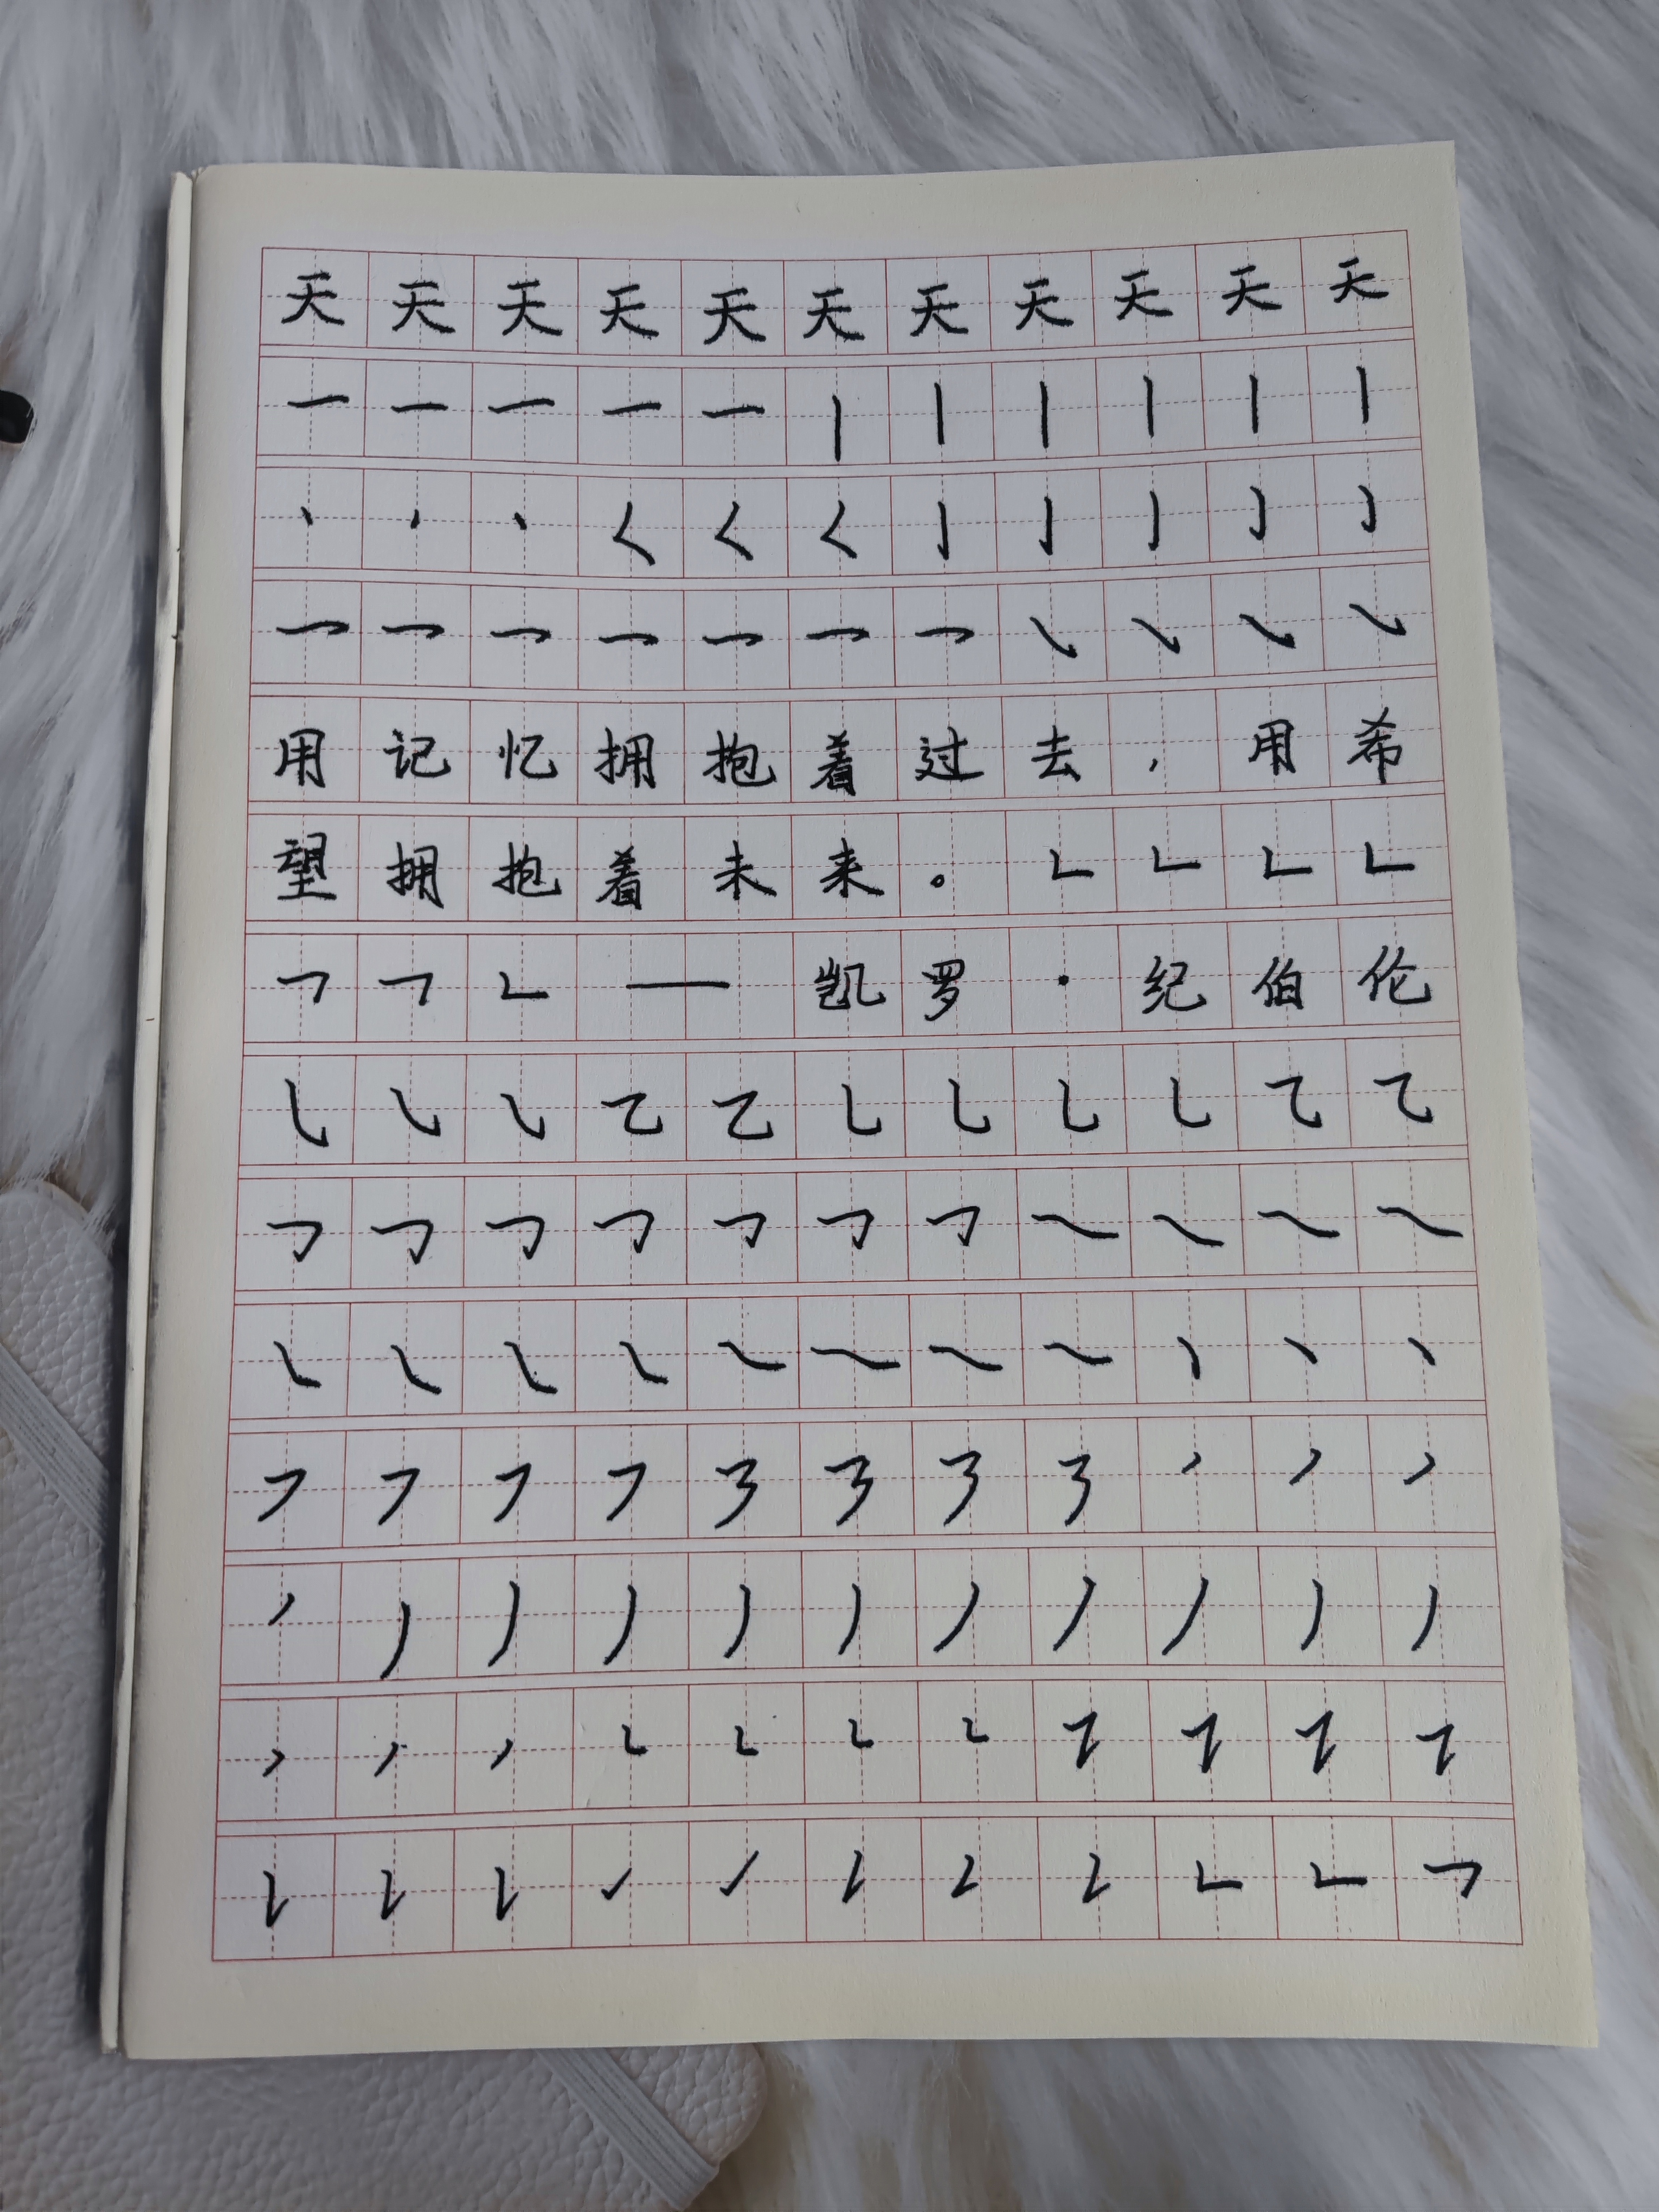 天天天天天天天天天天天
一一一一一丨丨丨丨丨丨
丶丶丶𡿨𡿨𡿨亅亅亅亅亅
乛乛乛乛乛乛乛㇏㇏㇏㇏
用记忆拥抱着过去，用希
望拥抱着未来。𠃊𠃊𠃊𠃊
𠃍𠃍𠃊——凯罗·纪伯伦
㇂㇂㇂乙乙乚乚乚乚㇈㇈
𠃌𠃌𠃌𠃌𠃌𠃌𠃌㇏㇏㇏㇏
㇏㇏㇏㇏㇏㇏㇏㇏丶丶丶
㇇㇇㇇㇇㇋㇋㇋㇋㇀㇇㇇
丿丿丿丿丿丿丿丿丿丿丿
㇒㇒㇒𠃊𠃊𠃊𠃊㇊㇊㇊㇊
𠄌𠄌𠄌㇀㇀𠄌𠄌𠄌𠃊𠃊𠃍